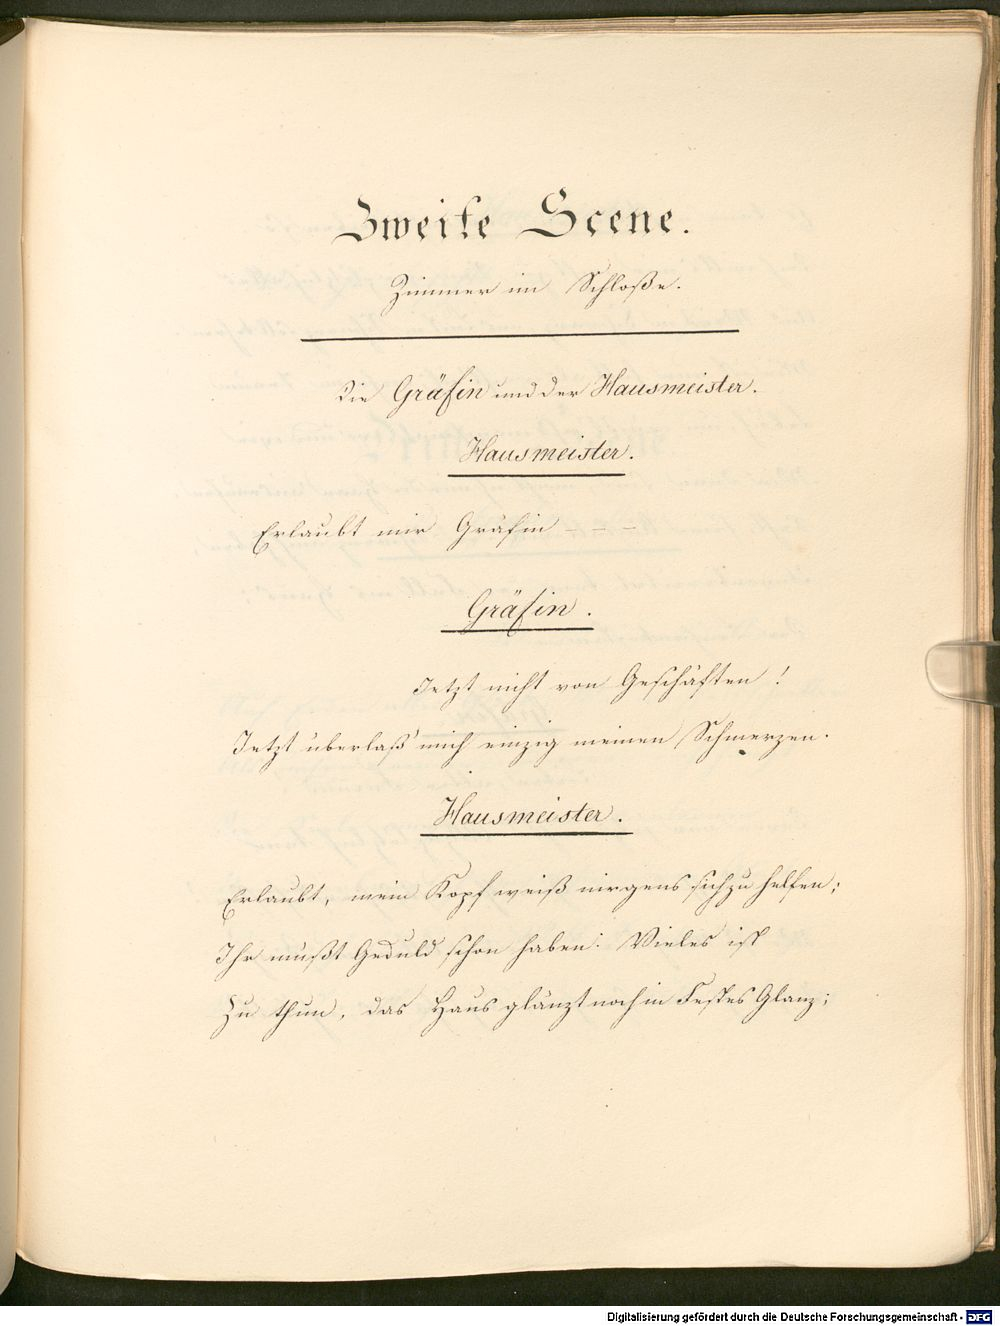 Zweite Scene.
Zimmer im Schloße.
Die Gräfin und der Hausmeister.
Hausmeister.
Erlaubt mir Gräfin – – –
Gräfin.
Jetzt nicht von Geschäften!
Jetzt überlaß' mich einzig meinen Schmerzen.
Hausmeister.
Erlaubt, mein Kopf weiß nirgens sich zu helfen;
Ihr müßt Geduld schon haben: Vieles ist
Zu thun, das Haus glänzt noch in Festes Glanz;
Digitalisierung gefördert durch die Deutsche Forschungsgemeinschaft - DFG